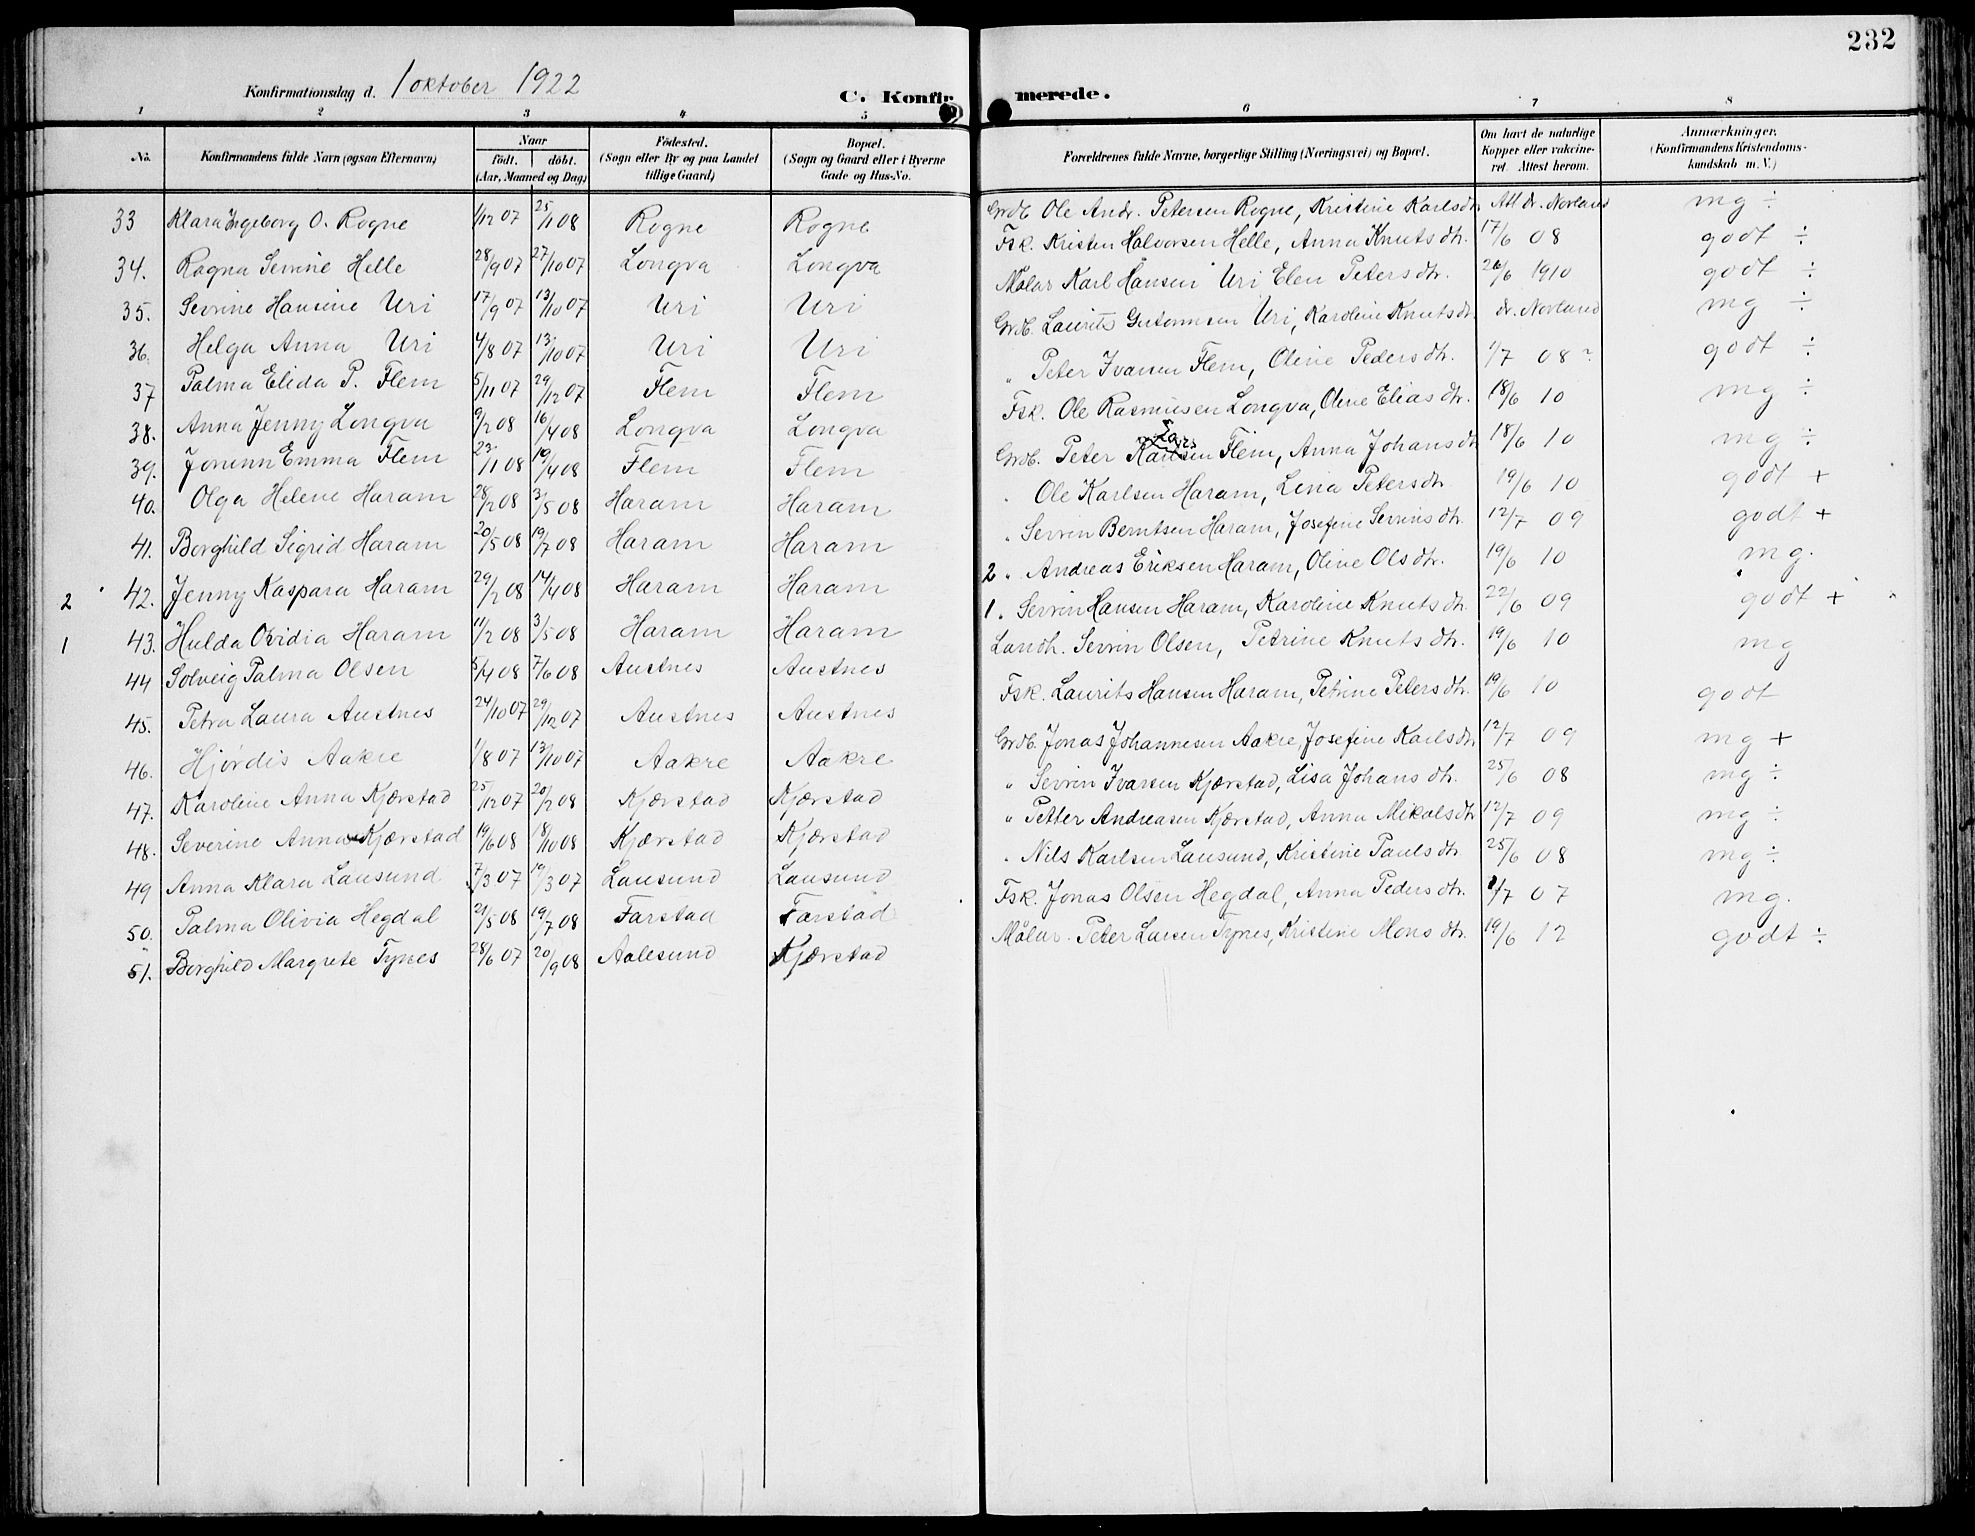 232
Konfirmationsdag d. 1 oktober 1922
C. Konfirmerede.
1 2 3 4 5 6 7 8
No. | Konfirmandens fulde Navn (ogsaa Efternavn) | Naar født. døbt. (Aar, Maaned og Dag) | Fødested. (Sogn eller By og paa Landet tillige Gaard) | Bopæl. (Sogn og Gaard eller i Byerne Gade og Hus-No. | Forældrenes fulde Navne, borgerlige Stilling (Næringsvei) og Bopæl. | Om havt de naturlige Kopper eller vakcineret. Attest herom. | Anmærkninger. (Konfirmandens Kristendomskundskab m. V.)
33 Klara Ingeborg O. Rogne 1/12 07 25/1 08 Rogne Rogne Grdb. Ole Andr. Petersen Rogne, Kristine Karlsdtr. Att dr. Norland mg ÷
34. Ragna Serine Helle 28/9 07 27/10 07 Longva Longva Fsk. Kristen Halvorsen Helle, Anna Knutsdtr. 17/6 08 godt ÷
35. Sevrine Hansine Uri 17/9 07 13/10 07 Uri Uri Målar Karl Hansen Uri Elen Petersdtr. 26/6 1910 godt ÷
36. Helga Anna Uri 4/8 07 13/10 07 Uri Uri Grdb. Laurits Guttormsen Uri, Karoline Knutsdtr. dr. Norland mg ÷
37 Palma Elida P. Flem 5/11 07 29/12 07 Flem Flem " Peter Ivarsen Flem, Oline Pedersdtr. 1/7 08 godt ÷
38. Anna Jenny Longva 9/2 08 16/4 08 Longva Longva Fsk. Ole Rasmusen Longva, Oline Eliasdtr. 18/6 10 mg ÷
39. Jorunn Emma Flem 23/11 08 19/4 08 Flem Flem Grdb. Peter Larsen Flem, Anna Johansdtr 18/6 10 mg ÷
40. Olga Helene Haram 28/2 08 3/5 08 Haram Haram . Ole Karlsen Haram, Lina Petersdtr 19/6 10 godt +
41. Borghild Sigrid Haram 20/5 08 19/7 08 Haram Haram . Sevrin Berntsen Haram, Josefine Sevrinsdtr. 12/7 09 godt +
2 42. Jenny Kaspara Haram 29/2 08 14/4 08 Haram Haram 2 " Andreas Eriksen Haram, Oline Olsdtr. 19/6 10 mg.
1 43. Hulda Ovidia Haram 11/2 08 3/5 08 Haram Haram 1. Sevrin Hansen Haram, Karoline Knutsdtr. 22/6 09 godt +
44 Solveig Palma Olsen 5/4 08 7/6 08 Austnes Austnes Landh. Sevrin Olsen, Petrine Knutsdtr. 19/6 10 mg
45. Petra Laura Austnes 24/10 07 29/12 07 Austnes Austnes Fsk. Laurits Hansen Haram, Petrine Petersdtr. 19/6 10 godt
46. Hjørdis Aakre 1/8 07 13/10 07 Aakre Aakre Grdb. Jonas Johannesen Aakre, Josefine Karlsdtr 12/7 09 mg +
47. Karoline Anna Kjærstad 25/12 07 20/2 08 Kjærstad Kjærstad " Sevrin Ivarsen Kjærstad, Lisa Johansdtr. 25/6 08 mg ÷
48. Severine Anna Kjærstad 19/6 08 18/10 08 Kjærstad Kjærstad " Petter Andreasen Kjærstad, Anna Mikalsdtr 12/7 09 mg ÷
49 Anna Klara Lausund 7/3 07 19/3 07 Lausund Lausund . Nils Karlsen Lausund, Kristine Paulsdtr 25/6 08 mg ÷
50. Palma Olivia Hegdal 21/5 08 19/7 08 Farstad Farstad Fsk. Jonas Olsen Hegdal, Anna Pedersdtr. 1/7 07 mg.
51. Borghild Margrete Tynes 28/6 07 20/9 08 Aalesund Kjærstad Målar. Peter Larsen Tynes, Kristine Monsdtr. 19/6 12 godt ÷